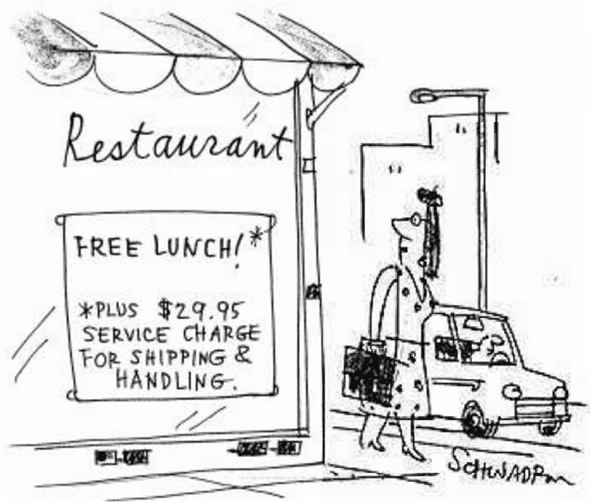 Restaurant
FREE LUNCH!*
*PLUS $29.95
SERVICE CHARGE
FOR SHIPPING &
HANDLING.